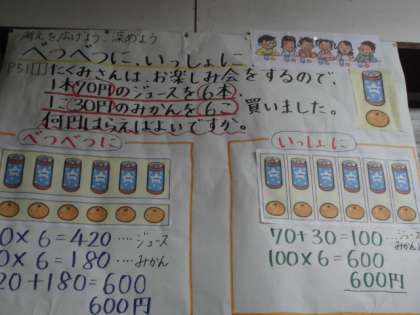 考えを広げよう、深めよう
べつべつに、いっしょに
P51 1 たくみさんは、お楽しみ会をするので、
1本70円のジュースを6本、
1こ30円のみかんを6こ 買いました。
何円はらえばよいですか。
べつべつに
0×6=420 ‥‥ジュース
0×6=180 ‥‥みかん
20+180=600
600円
いっしょに
70+30=100 ‥‥ジュース
みかん
100×6=600
600円